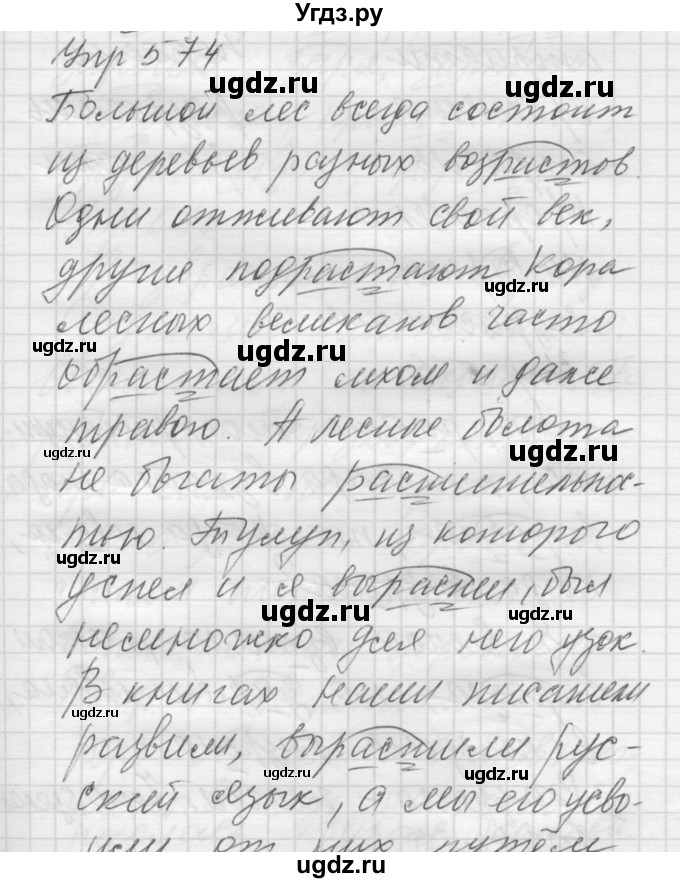 Угдз.ру
Упр 574
ugdz.ru
Большой лес всегда состоит
ugdz.ru
из деревьев разных возрастов.
Одни отживают свой век,
ugdz.ru
другие подрастают Кора
ugdz.ru
лесных великанов часто
ugdz.ru
ugdz.ru
обрастает мхом и даже
травою. А лесные болота
ugdz.ru
ugdz.ru
не богаты растительно-
стью. Тулуп, из которого
ugdz.ru
успел и я вырасти, был
ugdz.ru
ugdz.ru
немножко для него узок.
В книгах наши писатели
ugdz.ru
развили, вырастили рус-
ugdz.ru
ugdz.ru
ский язык, а мы его усво-
или от них путём
ugdz.ru